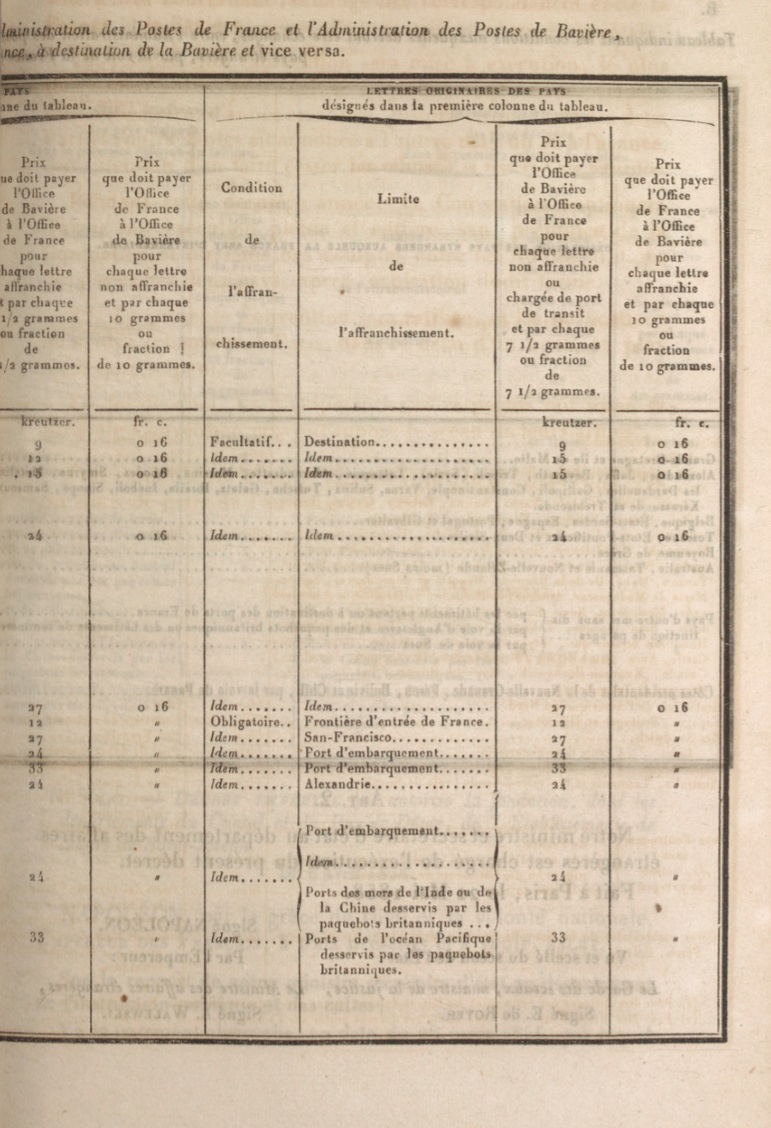 lministration des Postes de France et l'Administration des Postes de Bavière,
nce, à destination de la Bavière et vice versa.
PAYS
nne du tableau.
LETTRES ORIGINAIRES DES PAYS
désignés dans la première colonne du tableau.
Prix
ue doit payer
l'Office
de Bavière
à l'Office
de France
pour
haque lettre
affranchie
t par chaque
1/2 grammes
ou fraction
de
1/2 grammes.
Prix
que doit payer
l'Office
de France
à l'Office
de Bavière
pour
chaque lettre
non affranchie
et par chaque
10 grammes
ou
fraction
de 10 grammes.
Condition
de
l'affran-
chissement.
Limite
de
l'affranchissement.
Prix
que doit payer
l'Office
de Bavière
à l'Office
de France
pour
chaque lettre
non affranchie
ou
chargée de port
de transit
et par chaque
7 1/2 grammes
ou fraction
de
7 1/2 grammes.
Prix
que doit payer
l'Office
de France
à l'Office
de Bavière
pour
chaque lettre
affranchie
et par chaque
10 grammes
ou
fraction
de 10 grammes.
kreutzer. fr. c. kreutzer. fr. c.
9 0 16 Facultatif... Destination............... 9 0 16
12 0 16 Idem....... Idem.................... 15 0 16
15 0 16 Idem....... Idem.................... 15 0 16
24 0 16 Idem....... Idem.................... 24 0 16
27 0 16 Idem....... Idem.................... 27 0 16
12 " Obligatoire.. Frontière d'entrée de France. 12 "
27 " Idem....... San-Francisco............. 27 "
24 " Idem....... Port d'embarquement....... 24 "
33 " Idem....... Port d'embarquement....... 33 "
24 " Idem....... Alexandrie................ 24 "
Port d'embarquement.......
Idem....................
24 " Idem....... 24 "
Ports des mers de l'Inde ou de
la Chine desservis par les
paquebots britanniques ...
33 " Idem....... Ports de l'océan Pacifique 33 "
desservis par les paquebots
britanniques.